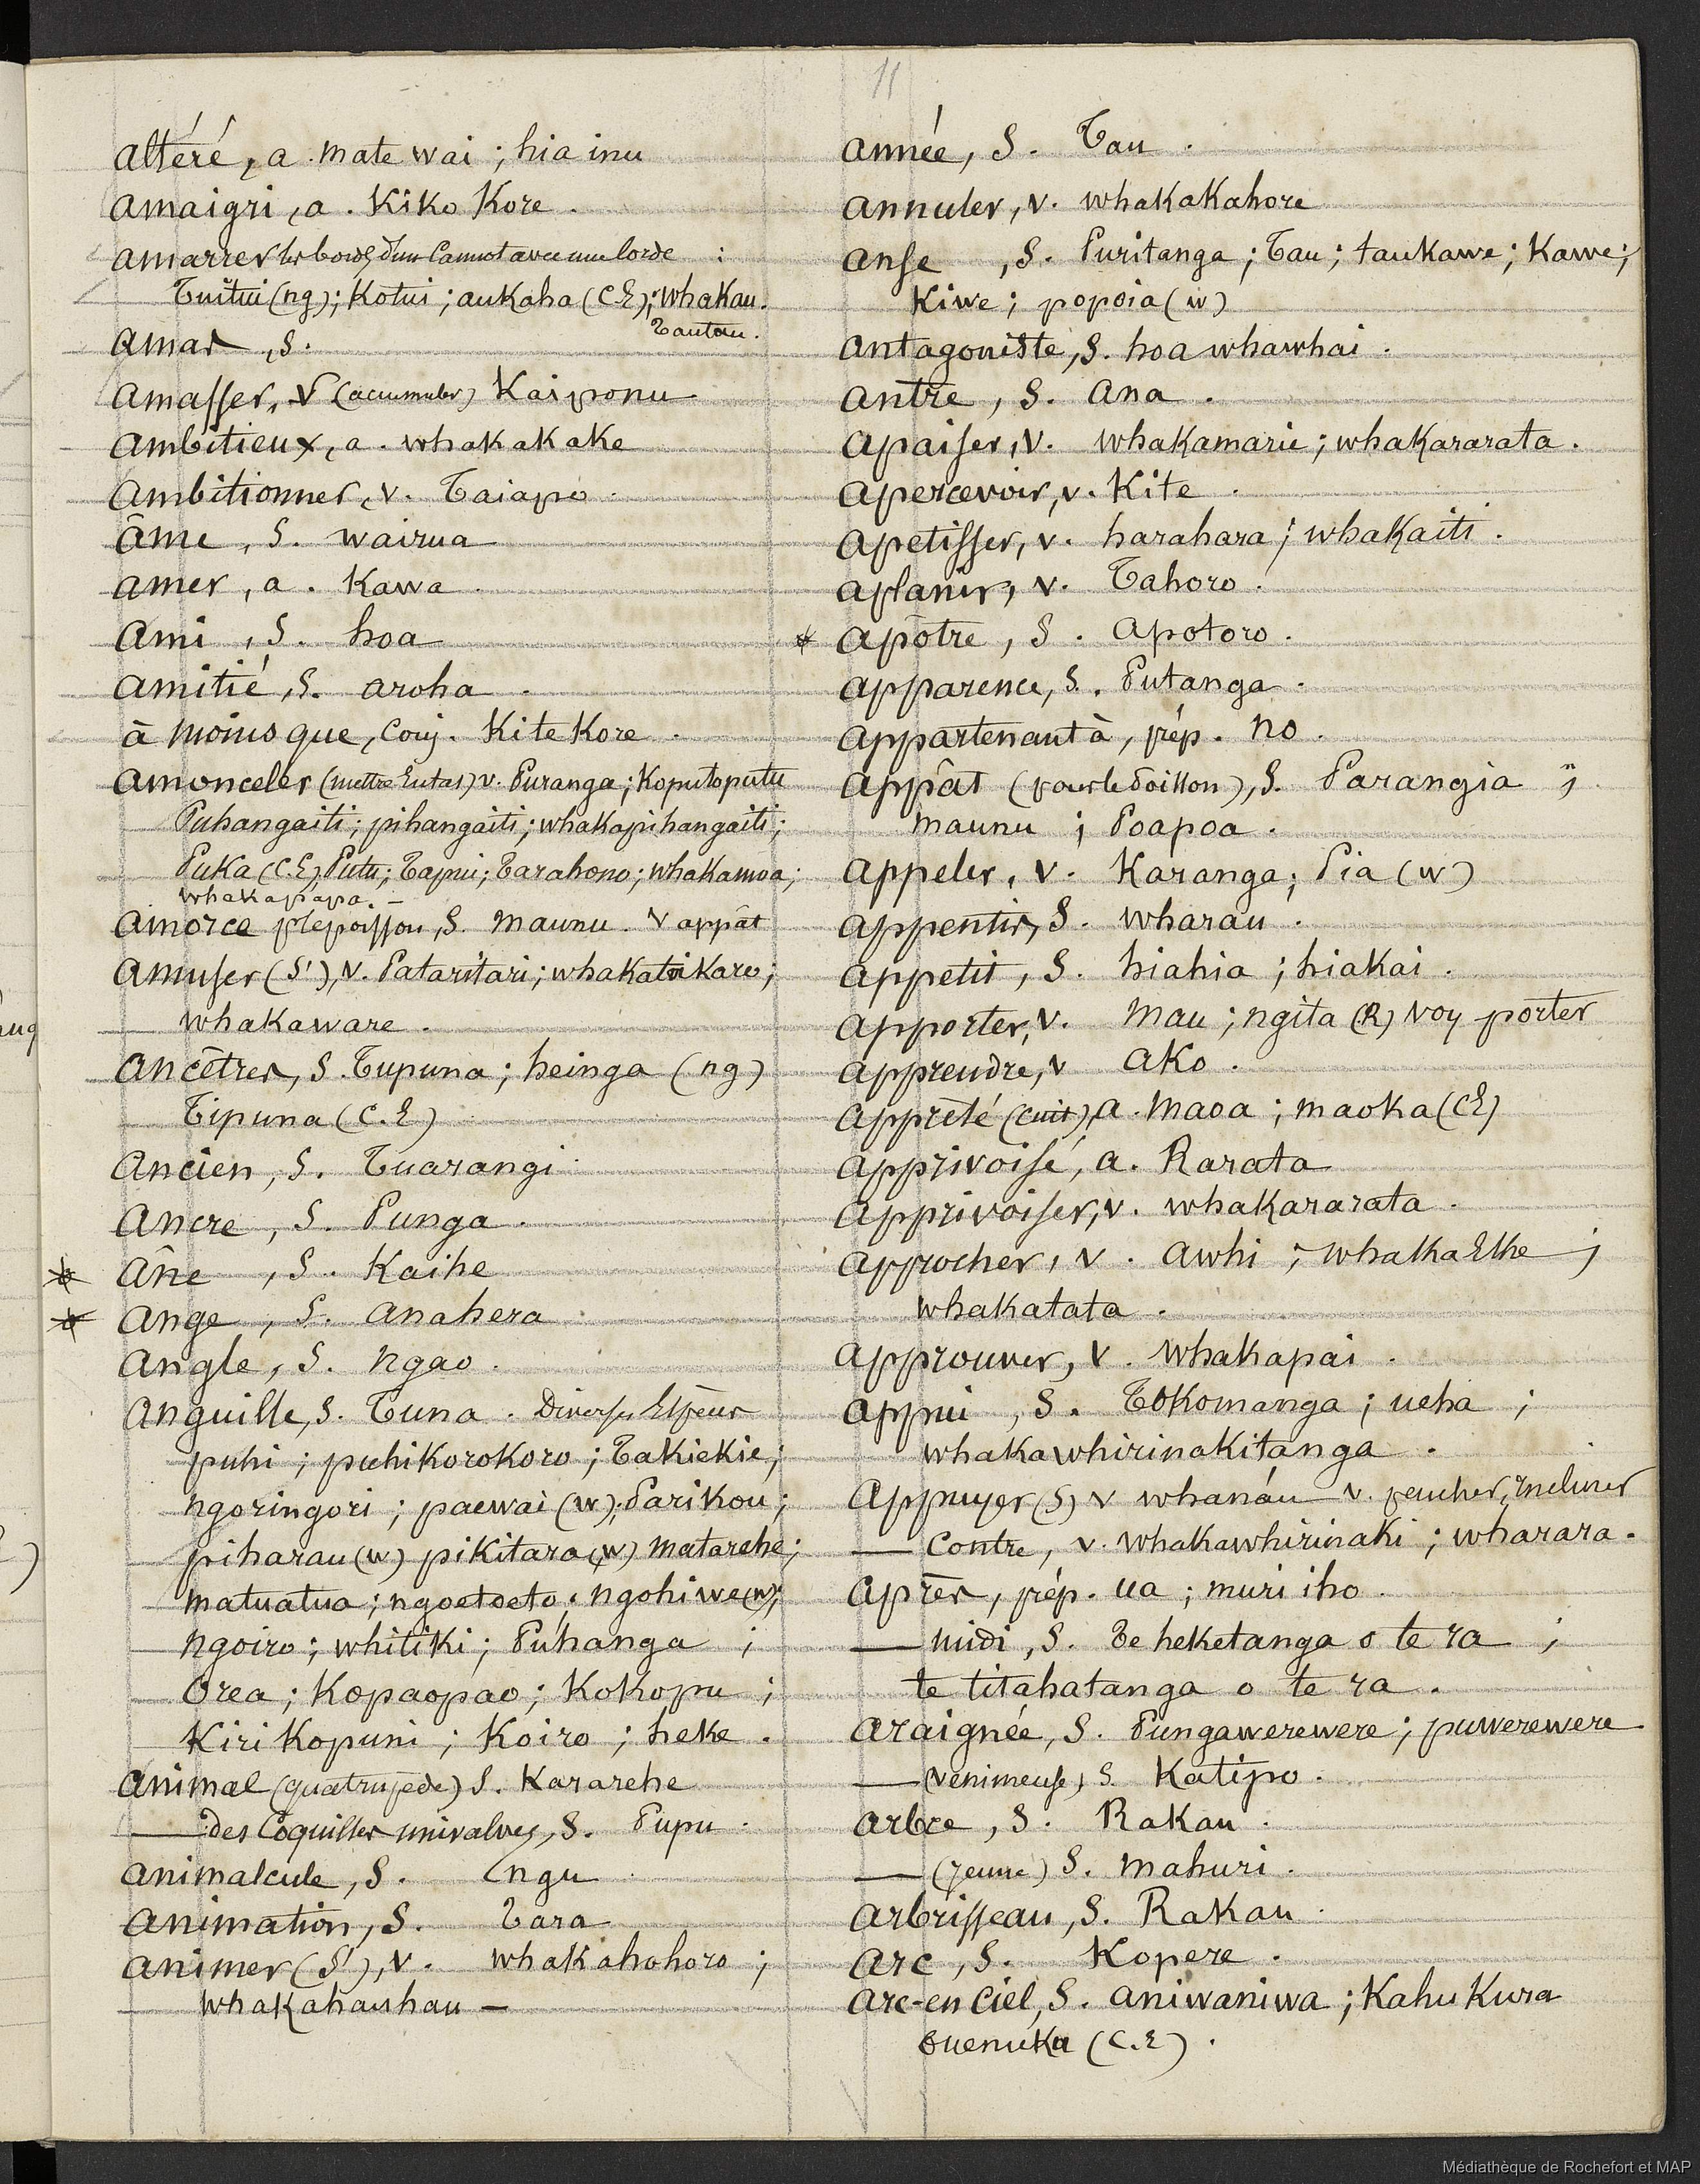 11
altéré, a. mate wai ; hia inu
amaigri, a. Kiko Kore.
amarrer les bords d'un Cannot avec une corde :
Tuitui (ng); Kotui ; aukaha (C.E); whakau.
Tautau.
amas, s.
amasser, v (accumuler) Kaiponu
ambitieux, a. whakakake
ambitionner, v. Taiapo.
âme, s. wairua
amer, a. Kawa.
ami, s. hoa
amitié, s. aroha.
à moins que, Conj. Ki te Kore.
amonceler (mettre En tas) v. Puranga ; Koputoputu
Puhangaiti ; pihangaiti ; whakapihangaiti ;
Puka (C.E) Putu ; Tapui ; Tarahono ; whakamoa ;
whakapapa. –
amorce p. le poisson, s. maunu. v appât
amuser (s'), v. Pataritari ; whakatakare ;
whakaware.
ancêtres, s. Tupuna ; heinga (ng)
Tipuna (C.E)
ancien, s. Tuarangi.
ancre, s. Punga.
* âne, s. Kaihe
* ange, s. anahera
angle, s. ngao.
anguille, s. Tuna. Diverses Espèces
puhi ; puhikorokoro ; Takiekie ;
ngoringori ; paewai (w); Parikou ;
piharau (w) pikitara (w) matarehe ;
matuatua ; ngoetoeto ; ngohiwe (w);
ngoiro ; whitiki ; Púhanga ;
orea ; Kopaopao ; Kokopu ;
Kirikopuni ; Koiro ; heke.
animal (quatrupède) s. Kararehe
— des Coquilles univalves, s. Pupu.
animalcule, s. ngu
animation, s. Tara
animer (s'), v. whakahohoro ;
whakahauhau –
année, s. Tau.
annuler, v. whakakahore
anse, s. Puritanga ; Tau ; taukawe ; Kawe ;
Kiwe ; popoia (w)
antagoniste, s. hoa whawhai.
antre, s. ana.
apaiser, v. whakamarie ; whakararata.
apercevoir, v. Kite.
apetisser, v. harahara ; whakaiti.
aplanir, v. Tahoro.
* apôtre, s. apotoro.
apparence, s. Putanga.
appartenant à, prép. no.
appât (pour le Poisson), s. Parangia ;
maunu ; Poapoa.
appeler, v. Karanga ; Pia (w)
appentis, s. wharau.
appetit, s. hiahia ; hiakai.
apporter, v. mau ; ngita (R) voy porter
apprendre, v ako.
apprêté (cuit), a. maoa ; maoka (CE)
apprivoisé, a. Rarata
apprivoiser, v. whakararata.
approcher, v. awhi ; whakaEke ;
whakatata.
approuver, v. whakapai.
appui, s. Tokomanga ; ueha ;
whakawhirinakitanga.
appuyer (s') v whanáu v. pencher, incliner
— Contre, v. whakawhirinaki ; wharara.
après, prép. ua ; muri iho.
— midi, s. Te heketanga o te ra ;
te titahatanga o te ra.
araignée, s. Pungawerewere ; puwerewere
— (venimeuse) s. Katipo.
arbre, s. Rakau.
— (jeune) s. mahuri.
arbrisseau, s. Rakau.
arc, s. Kopere.
arc-en Ciel, s. aniwaniwa ; Kahu Kura
ouenuku (C.E).
Médiathèque de Rochefort et MAP